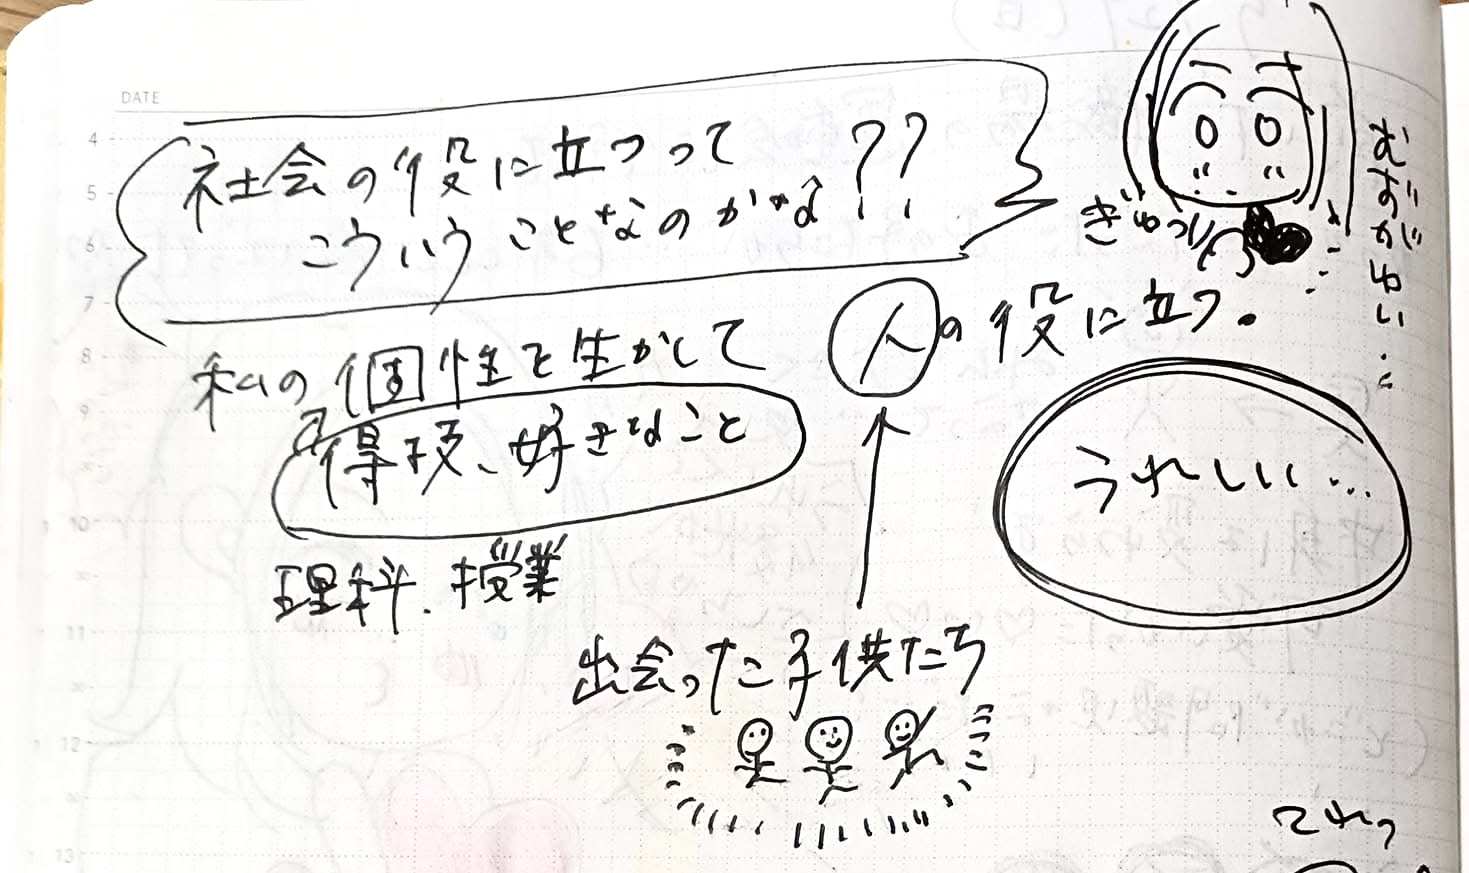 DATE
社会の役に立つって
こういうことなのかな??
ぎゅっ
むずがゆい…
私の個性を生かして
人の役に立つ。
得技、好きなこと
うれしい…
理科、授業
出会った子供たち
4
5
6
7
8
9
10
11
12
13